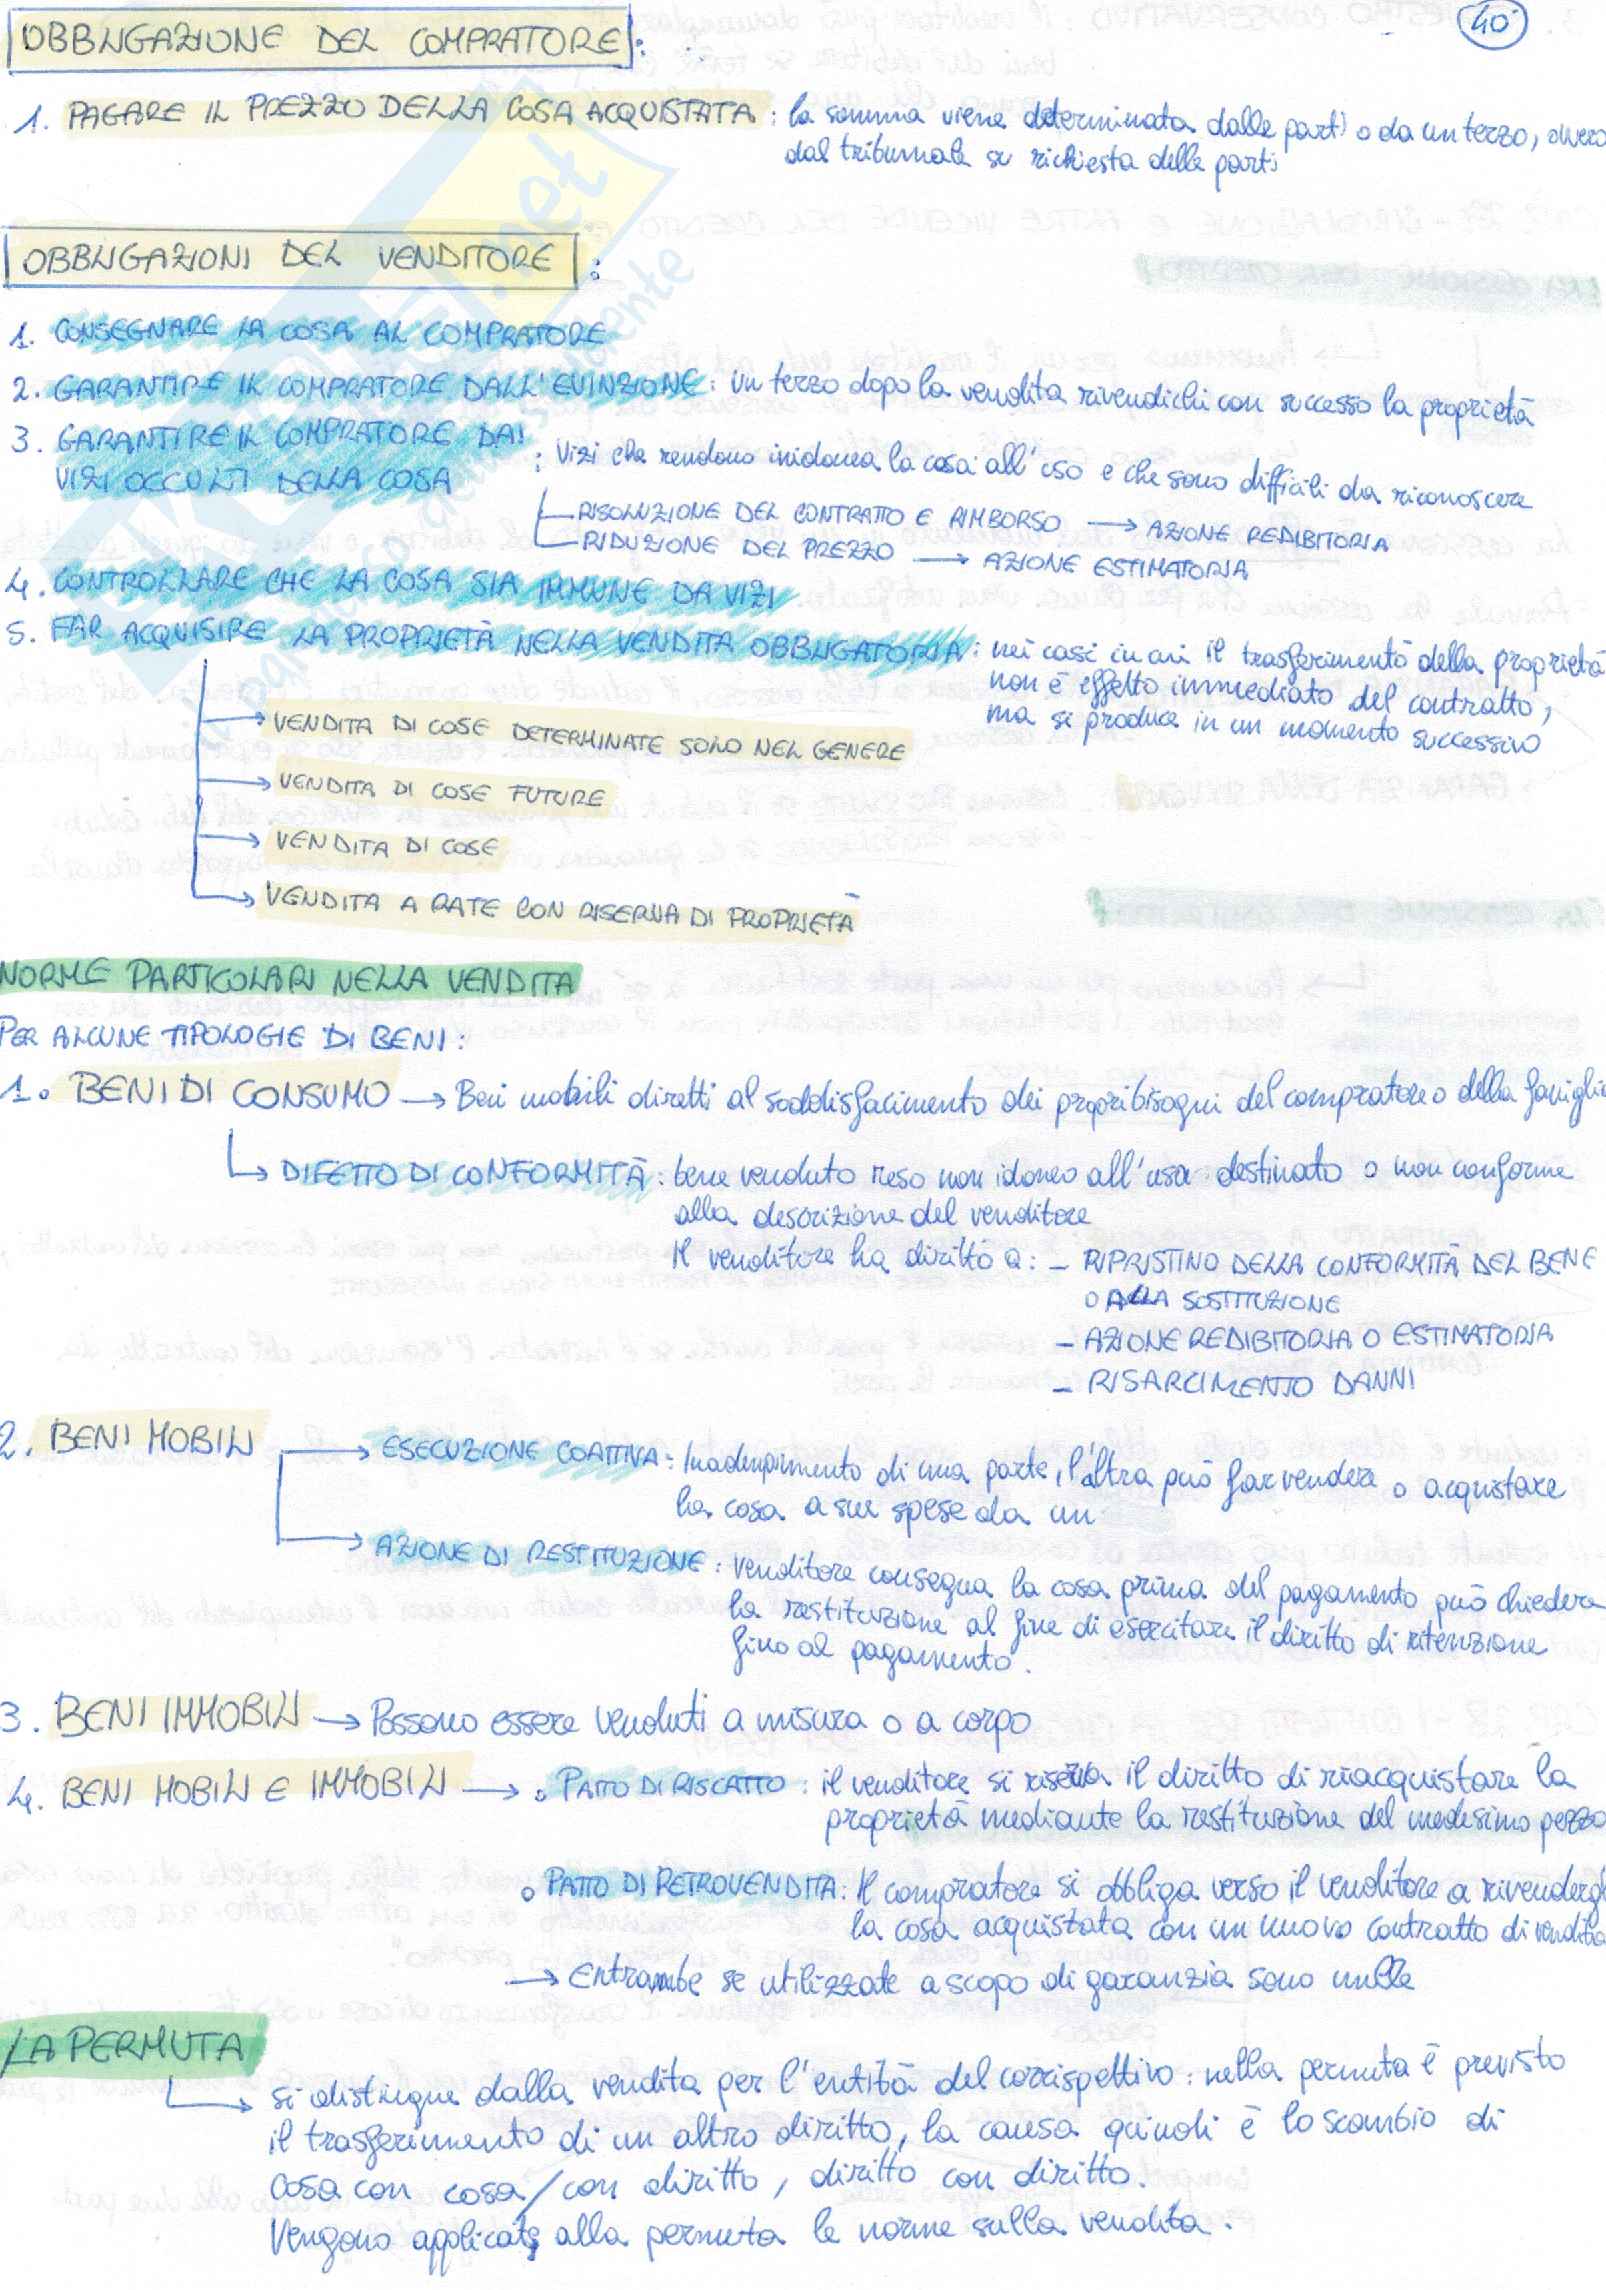 40
OBBLIGAZIONE DEL COMPRATORE:
1. PAGARE IL PREZZO DELLA COSA ACQUISTATA: la somma viene determinata dalle parti o da un terzo, ovvero
dal tribunale su richiesta delle parti
OBBLIGAZIONI DEL VENDITORE:
1. CONSEGNARE LA COSA AL COMPRATORE
2. GARANTIRE IL COMPRATORE DALL'EVINZIONE: un terzo dopo la vendita rivendichi con successo la proprietà
3. GARANTIRE IL COMPRATORE DAI
VIZI OCCULTI DELLA COSA: Vizi che rendono inidonea la cosa all'uso e che sono difficili da riconoscere
RISOLUZIONE DEL CONTRATTO E RIMBORSO → AZIONE REDIBITORIA
RIDUZIONE DEL PREZZO → AZIONE ESTIMATORIA
4. CONTROLLARE CHE LA COSA SIA IMMUNE DA VIZI
5. FAR ACQUISIRE LA PROPRIETÀ NELLA VENDITA OBBLIGATORIA: nei casi in cui il trasferimento della proprietà
non è effetto immediato del contratto,
ma si produce in un momento successivo
→ VENDITA DI COSE DETERMINATE SOLO NEL GENERE
→ VENDITA DI COSE FUTURE
→ VENDITA DI COSE
→ VENDITA A RATE CON RISERVA DI PROPRIETÀ
NORME PARTICOLARI NELLA VENDITA
PER ALCUNE TIPOLOGIE DI BENI:
1. BENI DI CONSUMO → Beni mobili diretti al soddisfacimento dei propri bisogni del compratore o della famiglia
→ DIFETTO DI CONFORMITÀ: bene venduto reso non idoneo all'uso destinato o non conforme
alla descrizione del venditore
Il venditore ha diritto a: - RIPRISTINO DELLA CONFORMITÀ DEL BENE
O ALLA SOSTITUZIONE
- AZIONE REDIBITORIA O ESTIMATORIA
- RISARCIMENTO DANNI
2. BENI MOBILI → ESECUZIONE COATTIVA: Inadempimento di una parte, l'altra può far vendere o acquistare
la cosa a sue spese da un
→ AZIONE DI RESTITUZIONE: venditore consegna la cosa prima del pagamento può chiedere
la restituzione al fine di esercitare il diritto di ritenzione
fino al pagamento.
3. BENI IMMOBILI → Possono essere venduti a misura o a corpo
4. BENI MOBILI E IMMOBILI → • PATTO DI RISCATTO: il venditore si riserva il diritto di riacquistare la
proprietà mediante la restituzione del medesimo pezzo
• PATTO DI RETROVENDITA: Il compratore si obbliga verso il venditore a rivendergli
la cosa acquistata con un nuovo contratto di vendita
→ Entrambe se utilizzate a scopo di garanzia sono nulle
LA PERMUTA
→ si distingue dalla vendita per l'entità del corrispettivo: nella permuta è previsto
il trasferimento di un altro diritto, la causa quindi è lo scambio di
cosa con cosa/con diritto, diritto con diritto.
Vengono applicate alla permuta le norme sulla vendita.